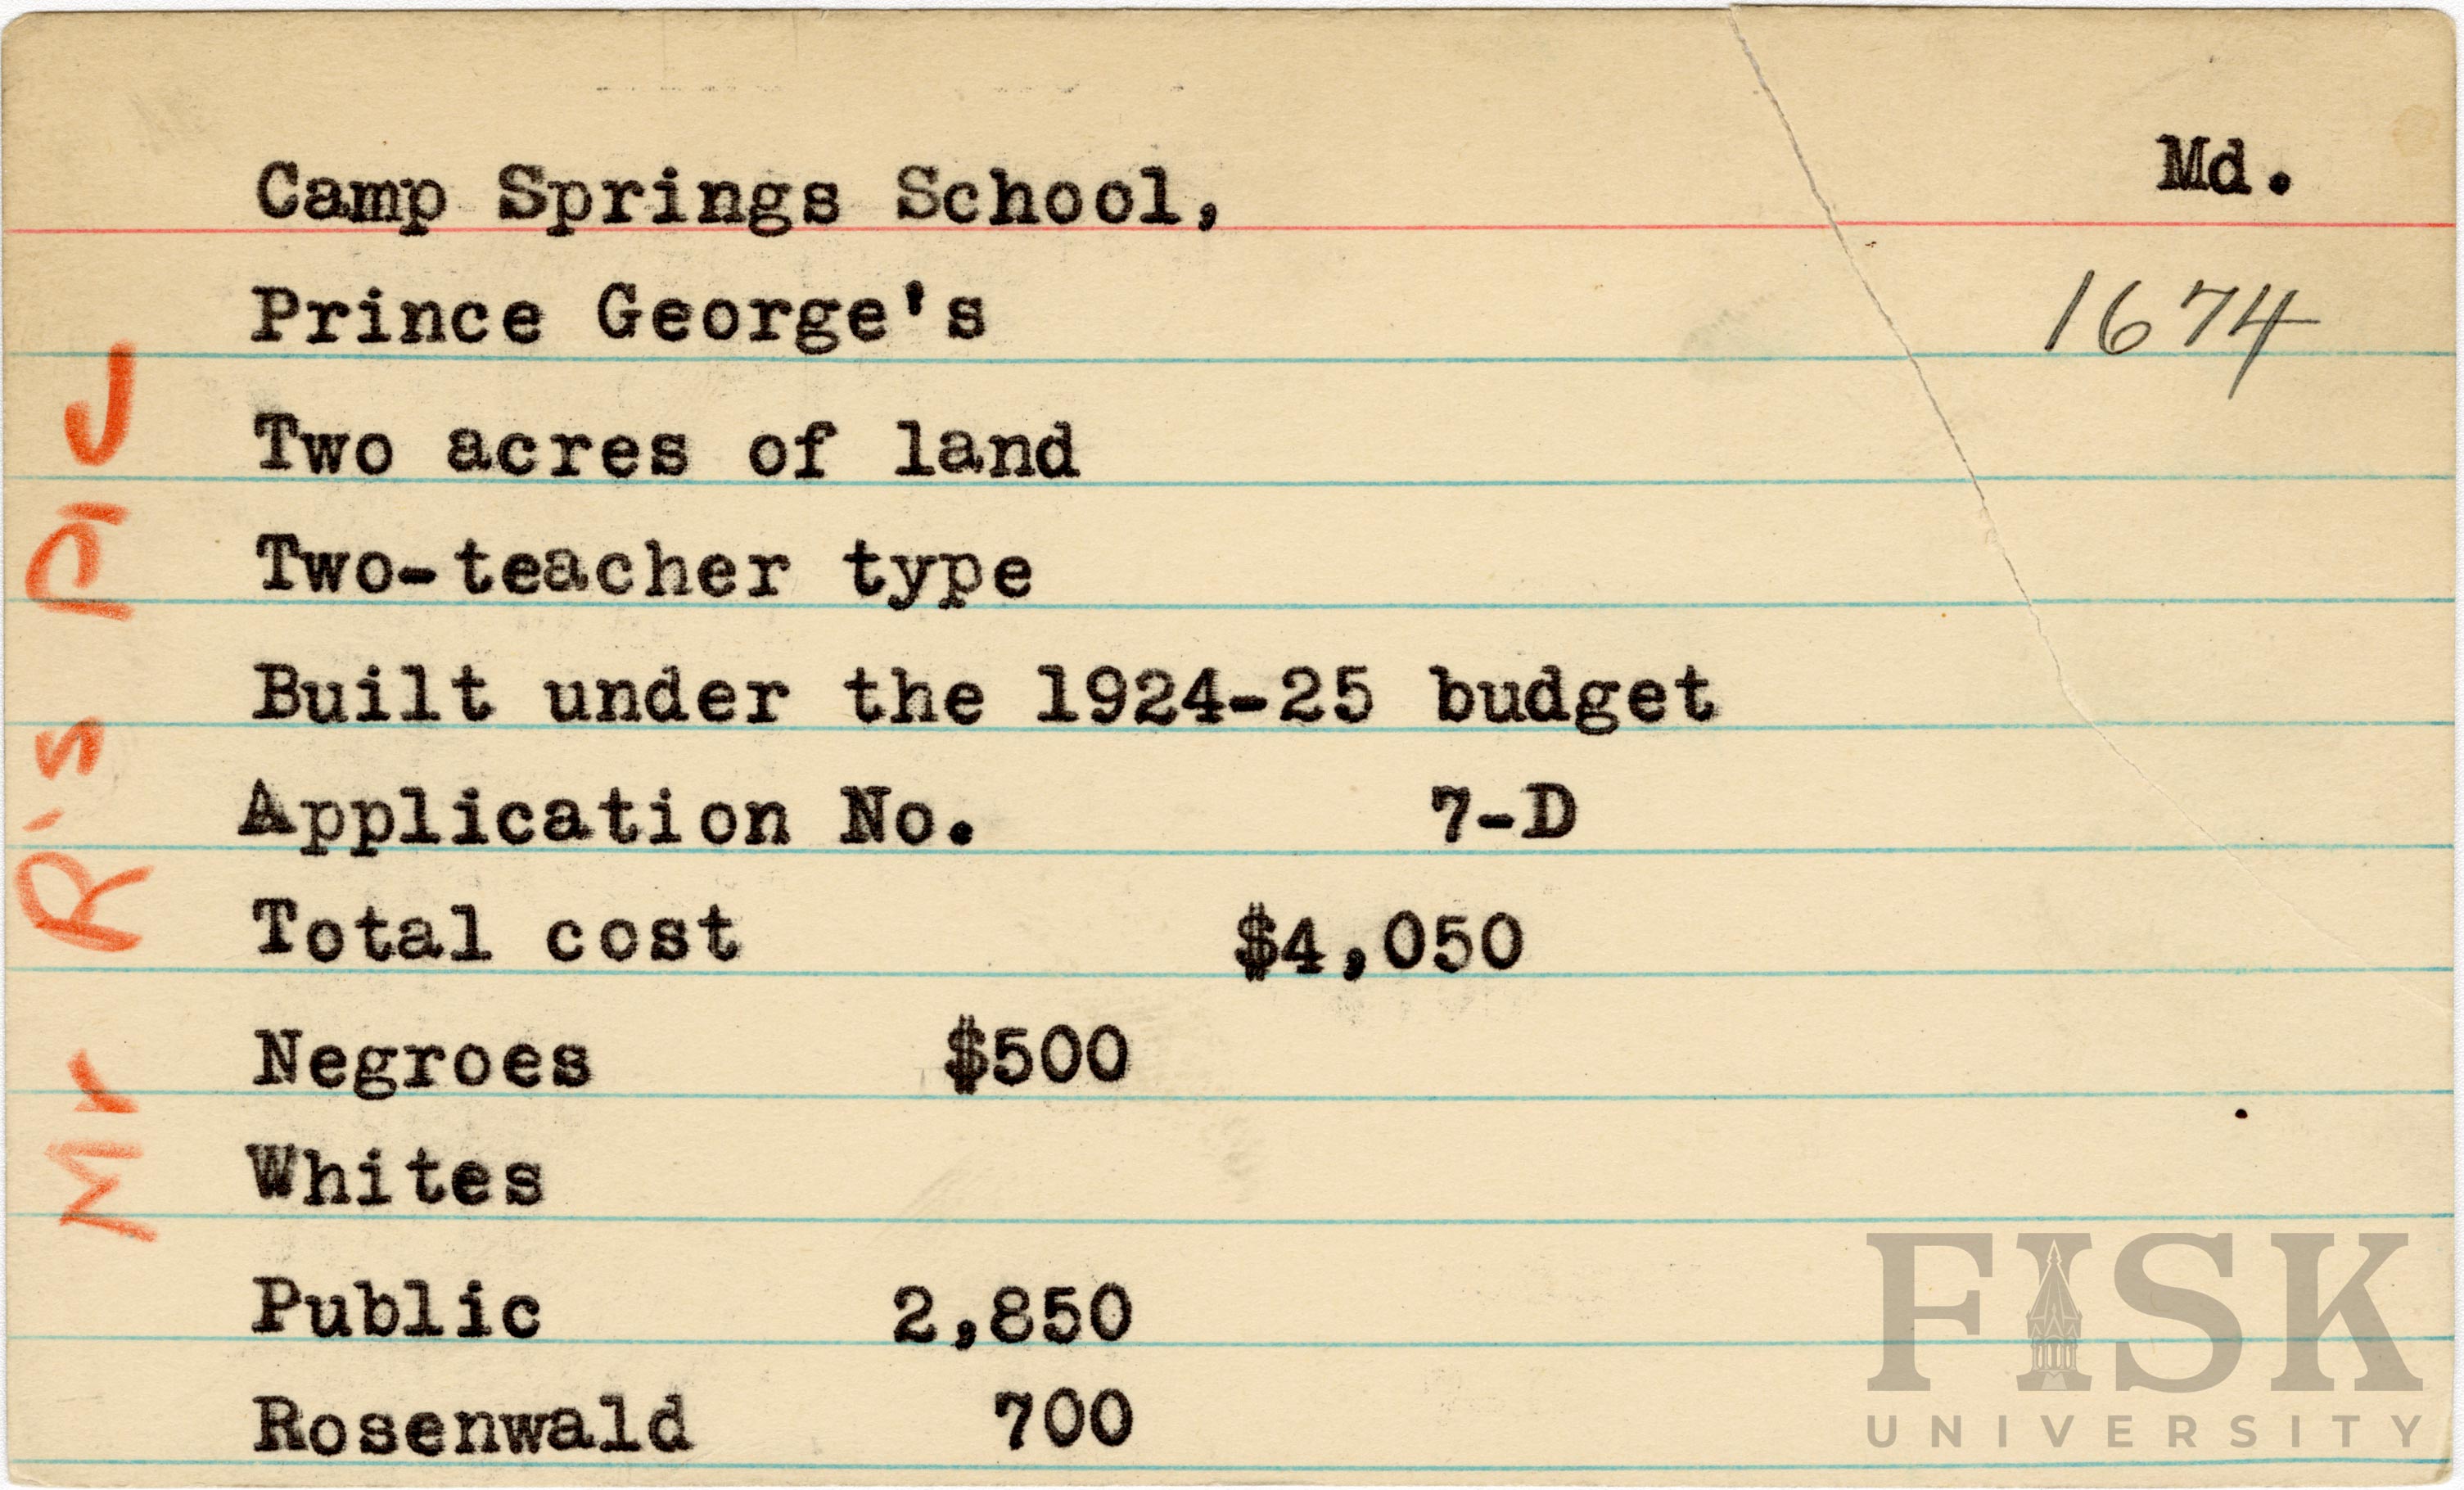 Camp Springs School, Md.
Prince George's 1674
Two acres of land
Two-teacher type
Built under the 1924-25 budget
Application No. 7-D
Total cost $4,050
Negroes $500
Whites
Public 2,850
Rosenwald 700
Mr R's Pic
FISK
UNIVERSITY